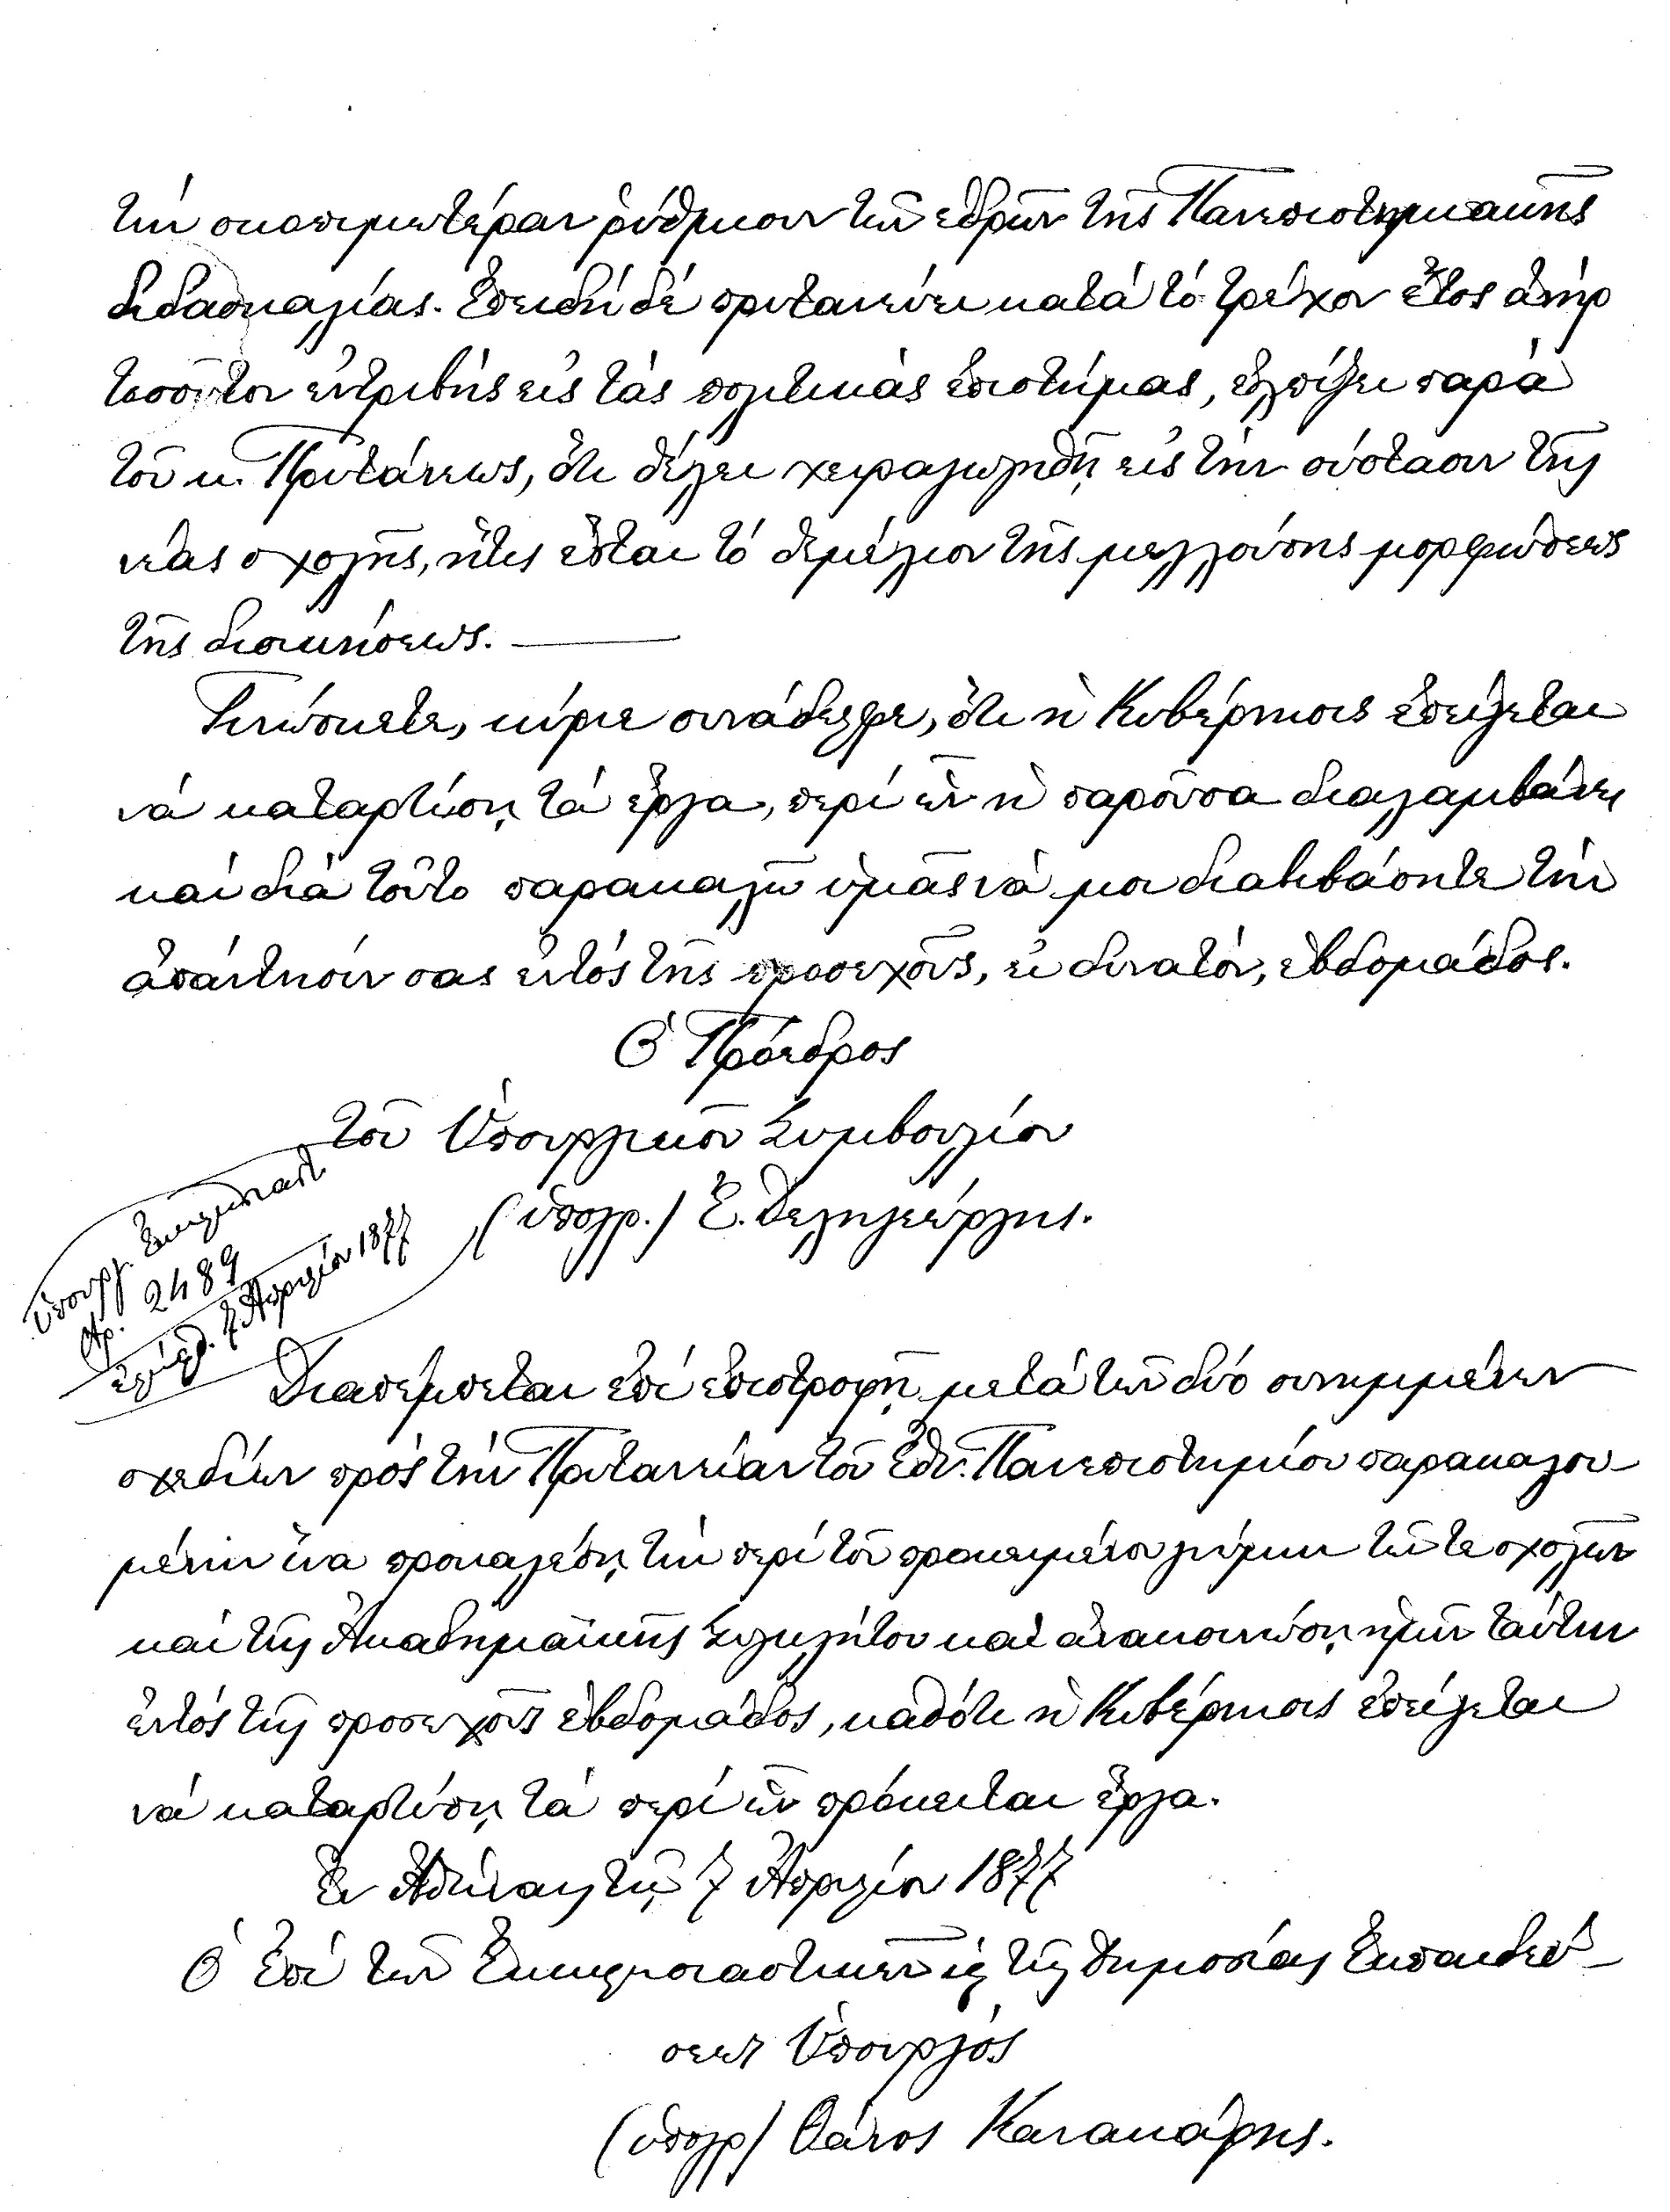 τὴν σκοπιμωτέραν ῥύθμισιν τῶν ἑδρῶν τῆς Πανεπιστημιακῆς
διδασκαλίας. Ἐπειδὴ δὲ πρυτανεύει κατὰ τὸ τρέχον ἔτος ἀνὴρ
τοσοῦτον ἐντριβὴς εἰς τὰς πολιτικὰς ἐπιστήμας, ἐλπίζει παρὰ
τοῦ κ. Πρυτάνεως, ὅτι θέλει χειραγωγηθῆ εἰς τὴν σύστασιν τῆς
νέας σχολῆς, ἥτις ἔσται τὸ θεμέλιον τῆς μελλούσης μορφώσεως
τῆς διοικήσεως. —
Γινώσκετε, κύριε συνάδελφε, ὅτι ἡ Κυβέρνησις ἐπείγεται
νὰ καταρτίσῃ τὰ ἔργα, περὶ ὧν ἡ παροῦσα διαλαμβάνει
καὶ διὰ τοῦτο παρακαλῶ ὑμᾶς νὰ μοι διαβιβάσητε τὴν
ἀπάντησίν σας ἐντὸς τῆς προσεχοῦς, εἰ δυνατόν, ἑβδομάδος.
Ὁ Πρόεδρος
τοῦ Ὑπουργικοῦ Συμβουλίου
(ὑπογρ.) Ἐ. Δεληγεώργης.
Ὑπουργ. Ἐκκλησιαστ
Ἀρ. 2489
7 Ἀπριλίου 1877
Διαπέμπεται ἐπὶ ἐπιστροφῇ μετὰ τῶν δύο συνημμένων
σχεδίων πρὸς τὴν Πρυτανείαν τοῦ Ἐθν. Πανεπιστημίου παρακαλου-
μένην ἵνα προκαλέσῃ τὴν περὶ τοῦ προκειμένου γνώμην τῶν τε σχολῶν
καὶ τῆς Ἀκαδημαϊκῆς Συγκλήτου καὶ ἀνακοινώσῃ ἡμῖν ταύτην
ἐντὸς τῆς προσεχοῦς ἑβδομάδος, καθότι ἡ Κυβέρνησις ἐπείγεται
νὰ καταρτίσῃ τὰ περὶ ὧν πρόκειται ἔργα.
Ἐν Ἀθήναις τῇ 7 Ἀπριλίου 1877
Ὁ Ἐπὶ τῶν Ἐκκλησιαστικῶν κ̀ τῆς Δημοσίας Ἐκπαιδεύ-
σεως Ὑπουργὸς
(ὑπογρ) Θάνος Κανακάρης.